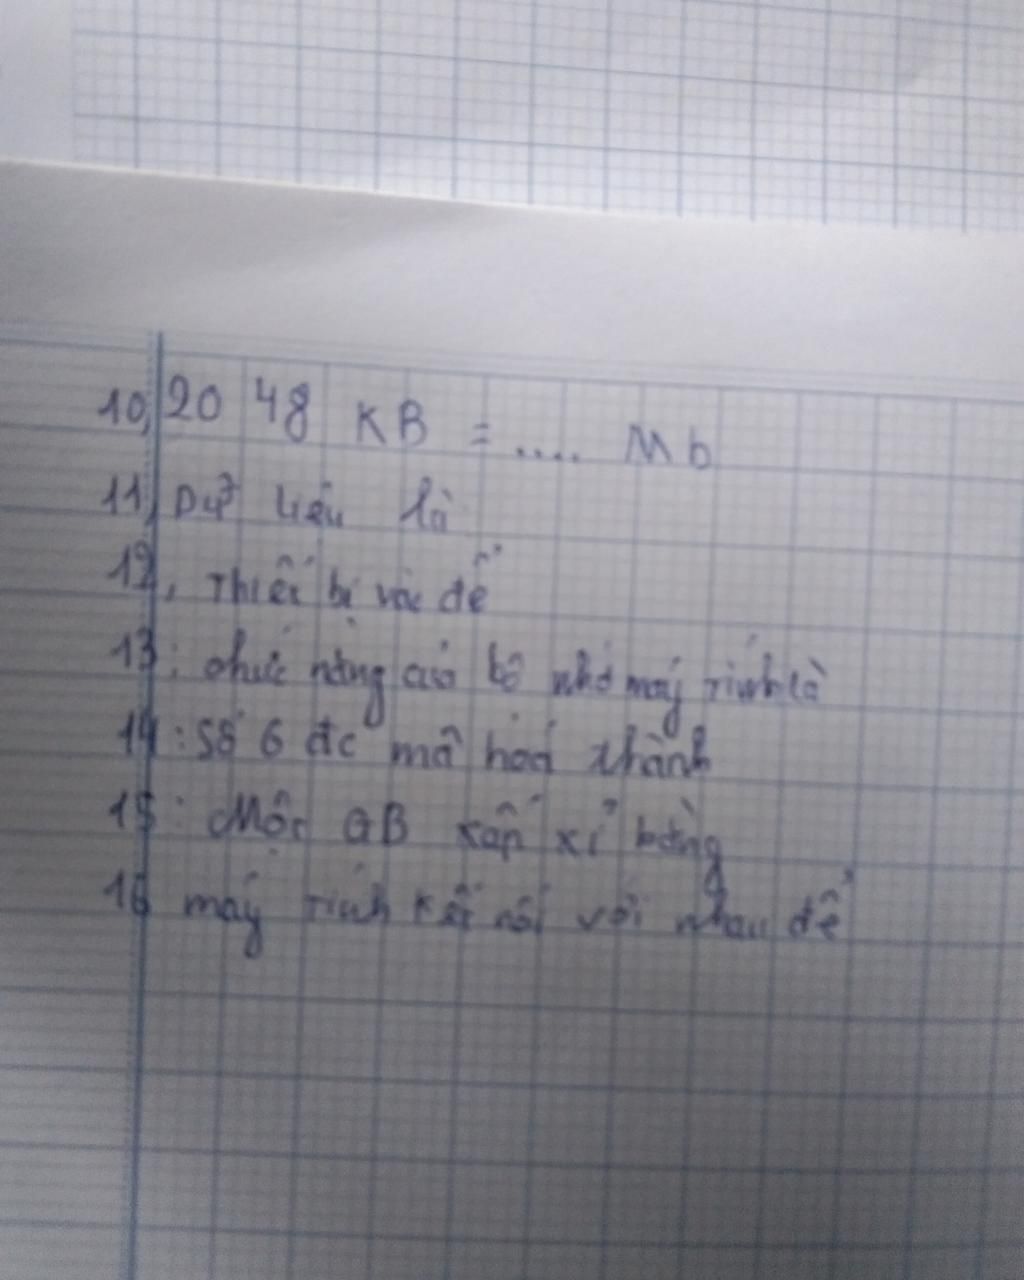 10, 20 48 KB = .... Mb
11, Dữ liệu là
12, Thiết bị vào để
13: chức năng của bộ nhớ máy tính là
14: Số 6 đc mã hoá thành
15: Một GB xấp xỉ bằng
16 máy tính kết nối với nhau để